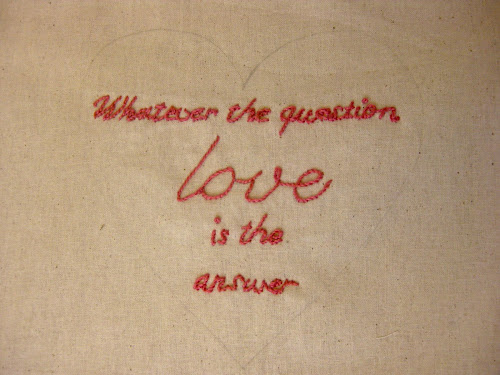 Whatever the question
love
is the
answer